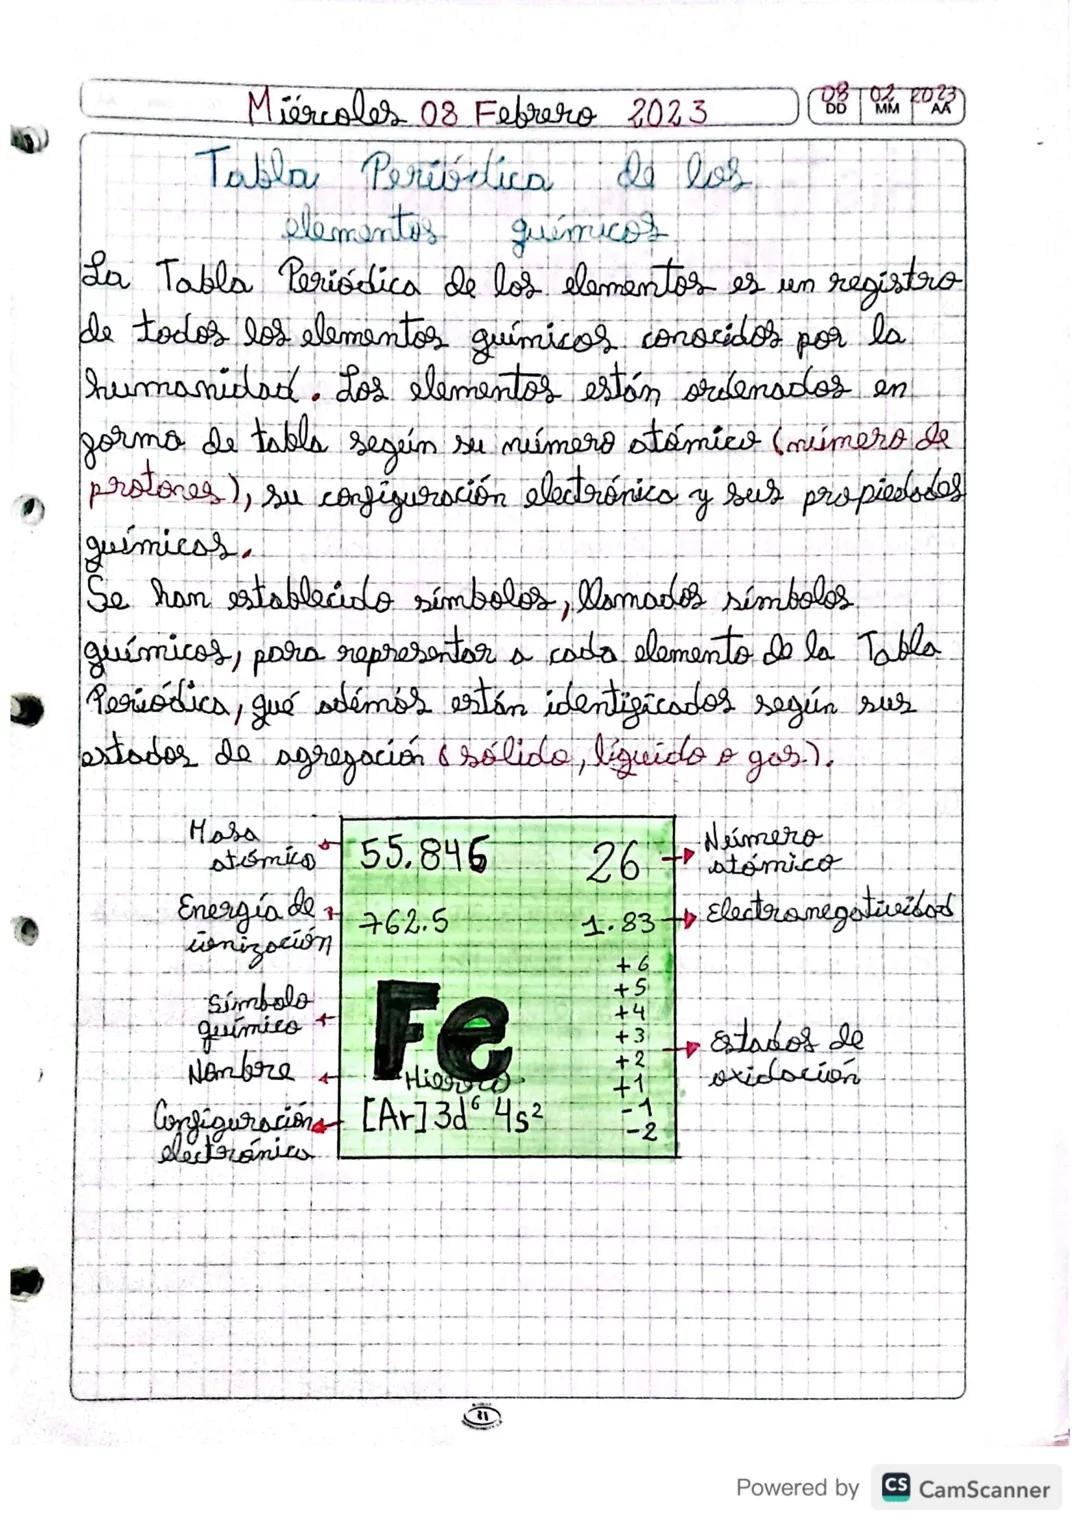 Miércoles 08 Febrero 2023
08 02 2023
DD MM AA
Tabla Periódica de los
elementos químicos
La Tabla Periódica de los elementos es un registro
de todos los elementos químicos conocidos por la
humanidad. Los elementos están ordenados en
forma de tabla según su número atómico (número de
protones), su configuración electrónica y sus propiedades
químicas.
Se han establecido símbolos, llamados símbolos
químicos, para representar a cada elemento de la Tabla
Periódica, qué además están identificados según sus
estados de agregación (sólido, líquido o gas).
Masa
atómica
55.846
26
Número
atómico
Energía de
ionización
762.5
1.83
Electronegatividad
Símbolo
químico
Fe
+6
+5
+4
+3
+2
+1
-1
-2
estados de
oxidación
Nombre
Hierro
Configuración
electrónica
[Ar] 3d⁶ 4s²
Powered by CS CamScanner